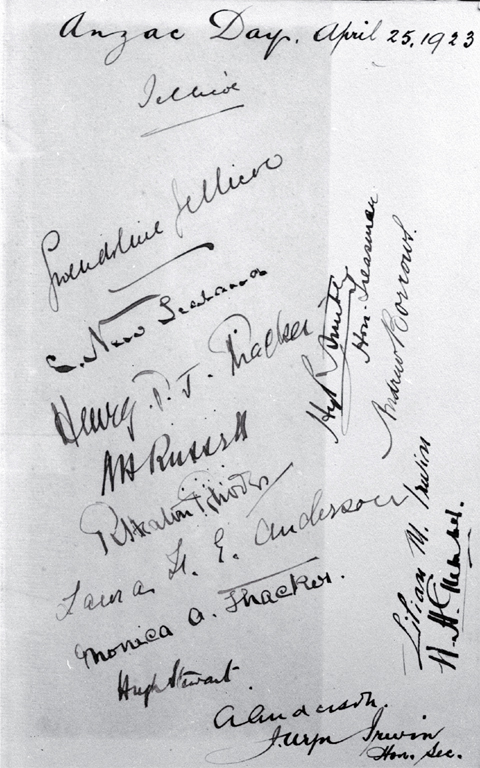 Anzac Day. April 25, 1923
Jellicoe
Gwendoline Jellicoe
C. New Zealand
Henry. T. J. Thacker
AH Russell
R Heaton Rhodes
Laura H. E. Anderson
Monica A. Thacker.
Hugh Stewart
A Anderson.
Irwin
Hon. Sec.
Hon. Treasurer
Andrew Borrows.
Lilian M. Irwin